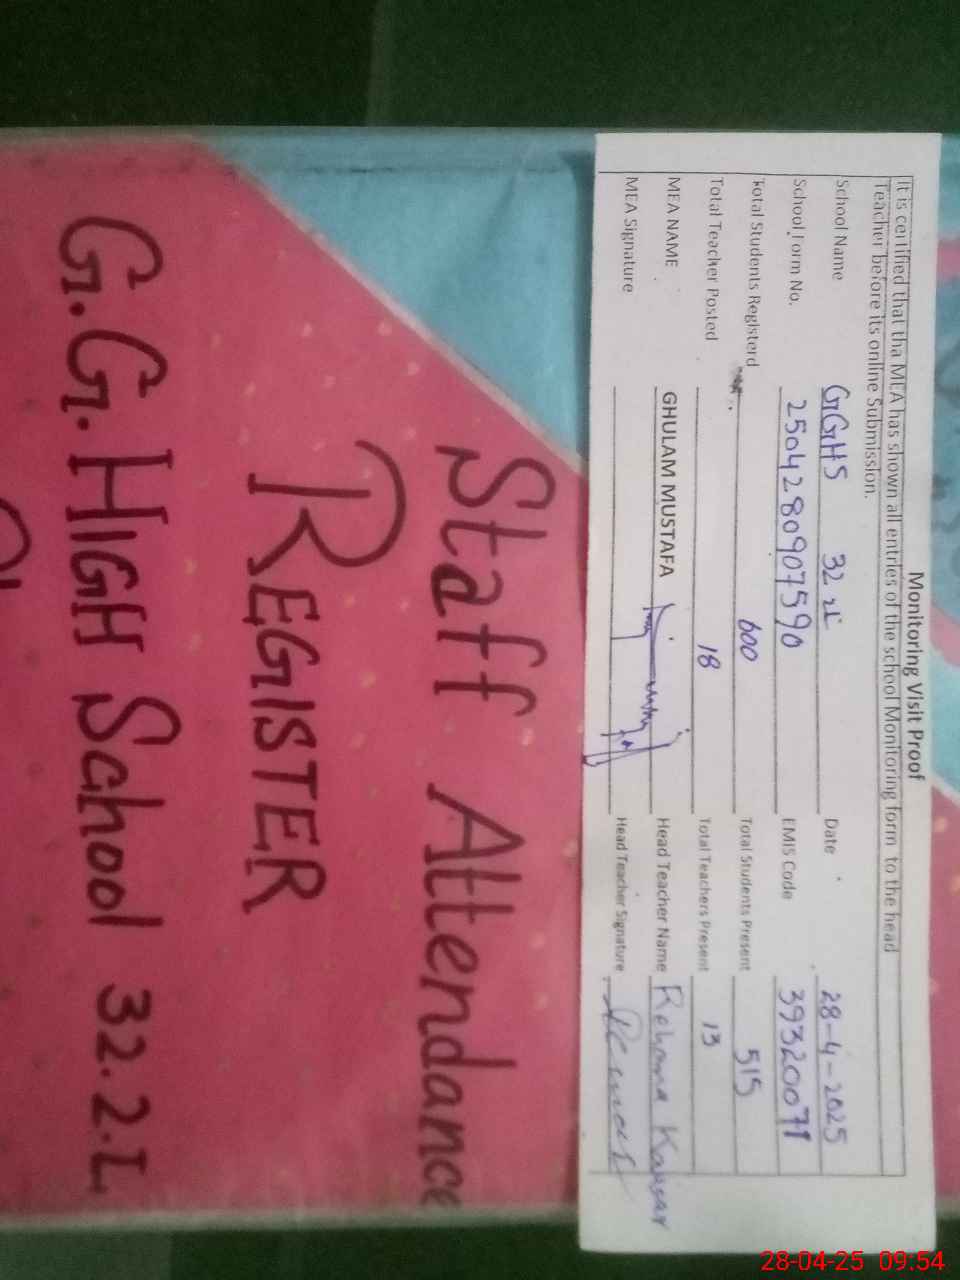 Monitoring Visit Proof
It is certified that tha MEA has shown all entries of the school Monitoring form to the head
Teacher before its online Submission.
School Name GGHS 32 Date 28-4-2025
School Form No. 250428090907590 EMIS Code 39320071
Total Students Registerd 600 Total Students Present 515
Total Teacher Posted 18 Total Teachers Present 13
MEA NAME GHULAM MUSTAFA Head Teacher Name Rehana Kausar
MEA Signature Head Teacher Signature
Staff Attendance
REGISTER
G.G. HIGH School 32.2.L
28-04-25 09:54